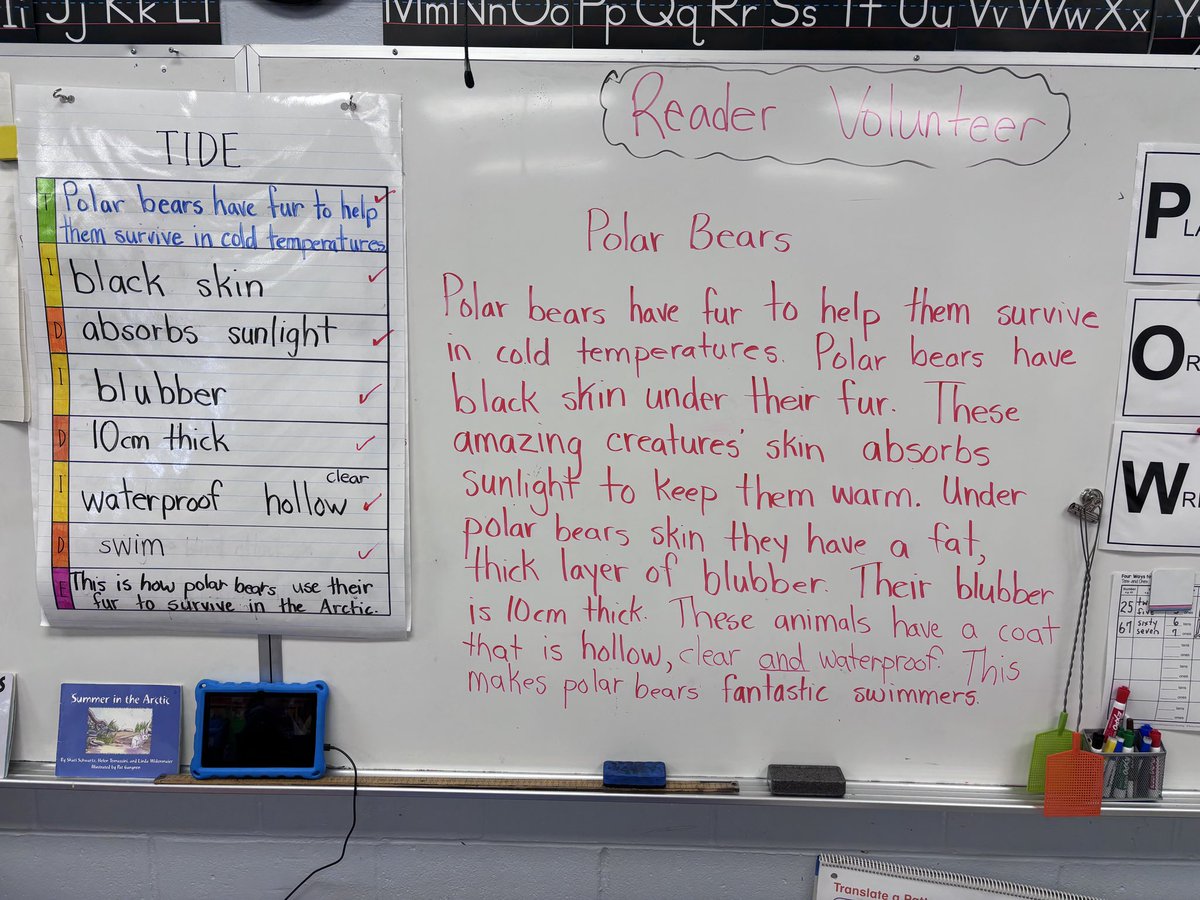 Ii Jj Kk Ll
Mm Nn Oo Pp Qq Rr Ss Tt Uu Vv Ww Xx
TIDE
T
Polar bears have fur to help
them survive in cold temperatures
I
black skin
D
absorbs sunlight
I
blubber
D
10cm thick
I
clear
waterproof hollow
D
swim
E
This is how polar bears use their
fur to survive in the Arctic.
Reader Volunteer
Polar Bears
Polar bears have fur to help them survive
in cold temperatures. Polar bears have
black skin under their fur. These
amazing creatures' skin absorbs
sunlight to keep them warm. Under
polar bears skin they have a fat,
thick layer of blubber. Their blubber
is 10cm thick. These animals have a coat
that is hollow, clear and waterproof. This
makes polar bears fantastic swimmers.
P
O
W
Four Ways
25
67 sixty 6
seven 7
Summer in the Arctic
By Shari Schwartz, Helen Tomassini, and Linda Widenmaier
Translate a